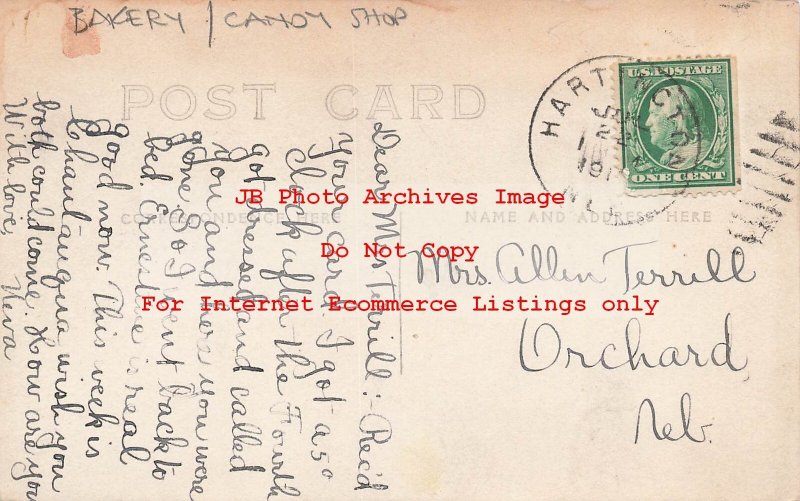 BAKERY / CANDY SHOP
POST CARD
U.S. POSTAGE
ONE CENT
HARTINGTON
CORRESPONDENCE HERE
NAME AND ADDRESS HERE
JB Photo Archives Image
Do Not Copy
For Internet Ecommerce Listings only
Dear Mrs Terrill:- Rec'd
your card. I got a 5°
clock after the Fourth
got dressed and called
you and hers you were
gone. So I went back to
bed. Ernestine is real
good now. This week is
Chautauqua wish you
both could come. How are you
With love,
Neva
Mrs. Allen Terrill
Orchard
Neb.